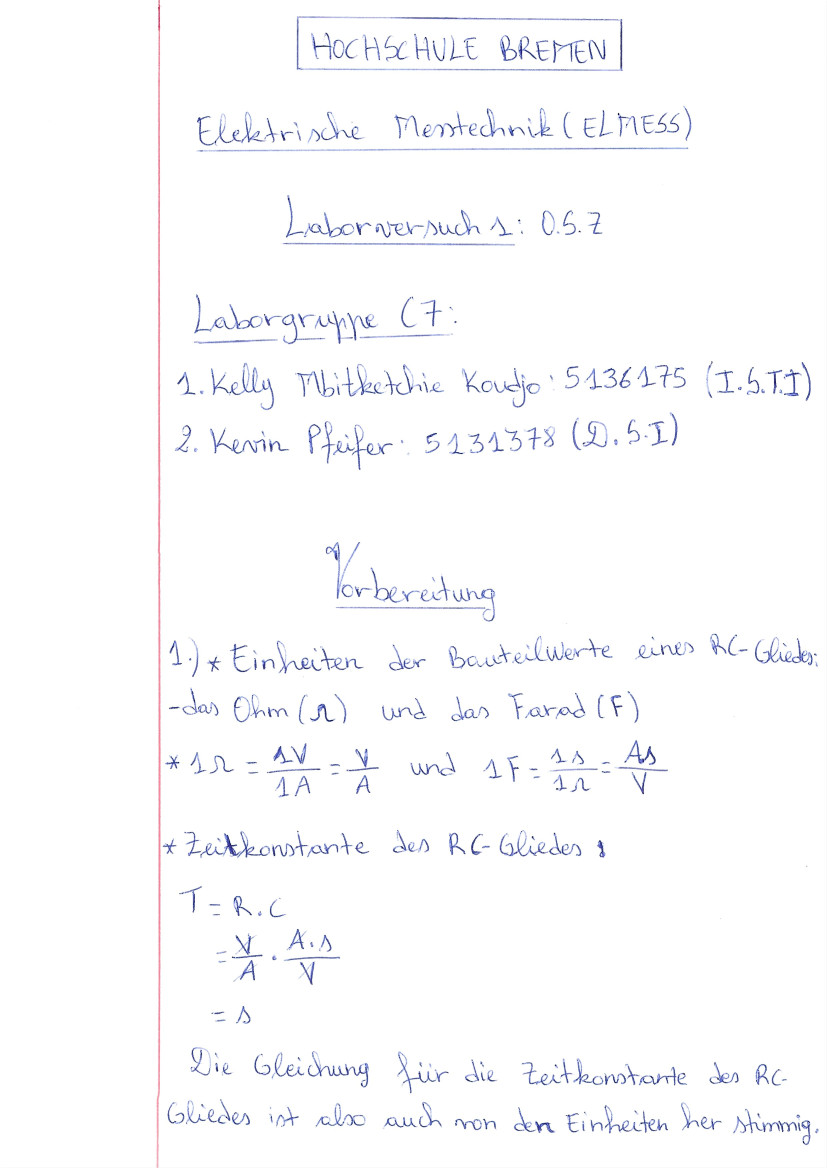 HOCHSCHULE BREMEN
Elektrische Messtechnik (ELMESS)
Laborversuch 1: O.S.Z
Laborgruppe C7:
1. Kelly Mbitketchie Koudjo: 5136175 (I.S.T.I)
2. Kevin Pfeifer: 5131378 (D.S.I)
Vorbereitung
1.) * Einheiten der Bauteilwerte eines RC-Gliedes:
- das Ohm (Ω) und das Farad (F)
* 1Ω = 1V/1A = V/A und 1F = 1s/1Ω = As/V
* Zeitkonstante des RC-Gliedes :
T = R.C
= V/A . A.s/V
= s
Die Gleichung für die Zeitkonstante des RC-
Gliedes ist also auch von den Einheiten her stimmig.